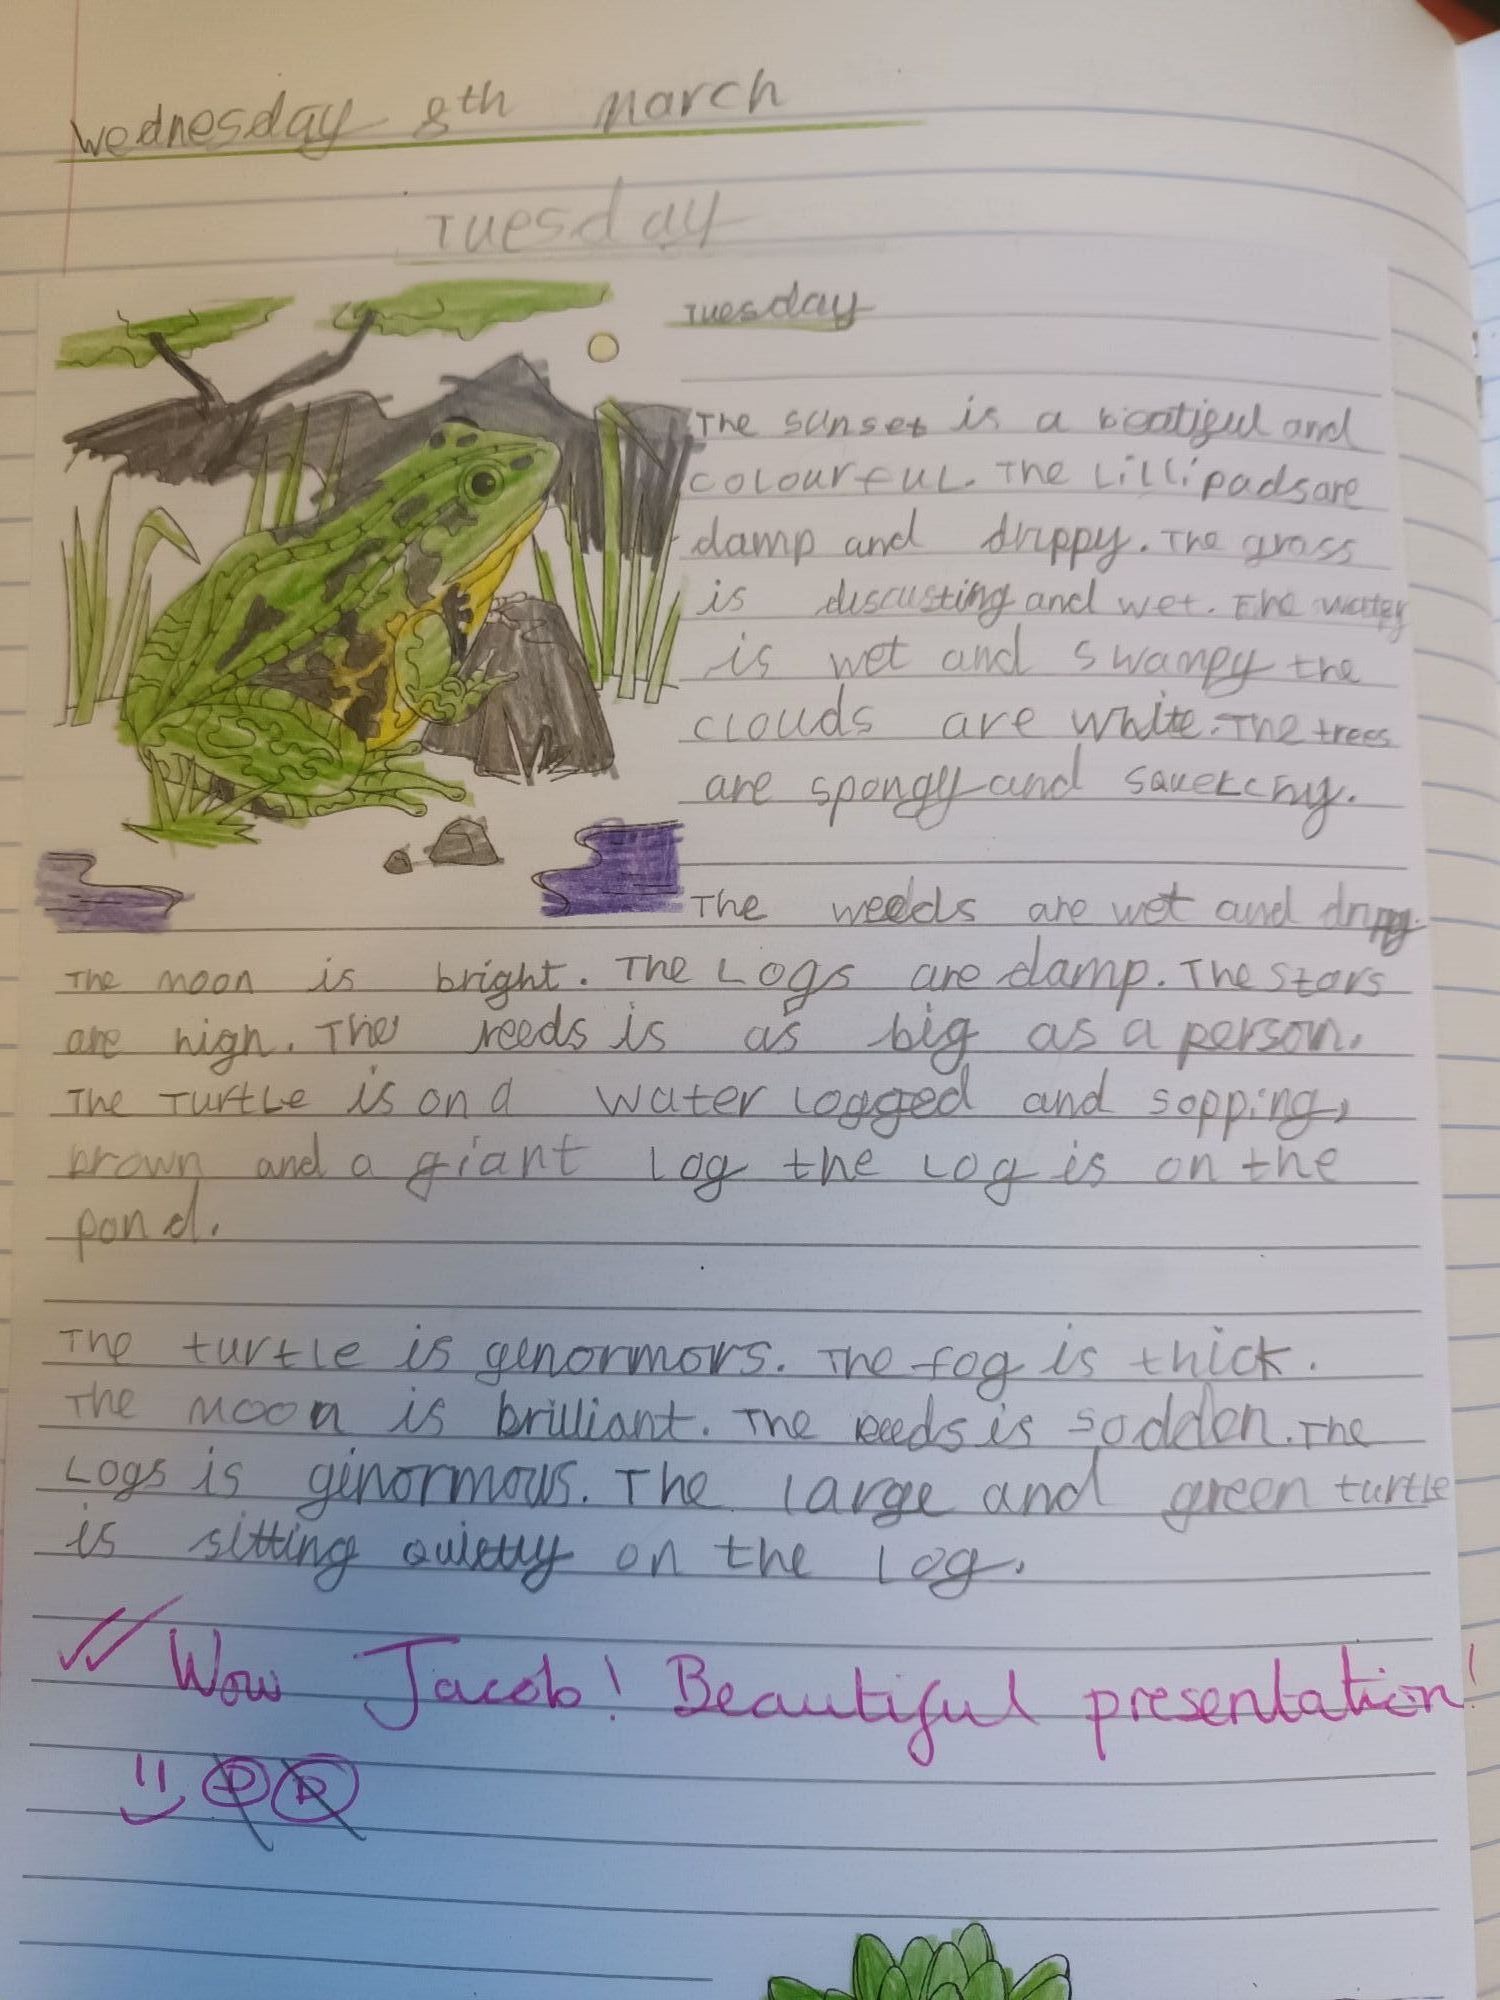 Wednesday 8th March
Tuesday
Tuesday
The sunset is a beatiful and
colourful. The Lillipads are
damp and drippy. The grass
is discusting and wet. The water
is wet and swampy the
clouds are white. The trees
are spongy and squetchy.
The weeds are wet and drippy.
The moon is bright. The Logs are damp. The stars
are high. The reeds is as big as a person.
The Turtle is on a water logged and sopping,
brown and a giant log the log is on the
pond.
The turtle is genormors. The fog is thick.
The moon is brilliant. The reeds is sodden. The
Logs is ginormous. The large and green turtle
is sitting quietly on the log.
Wow Jacob! Beautiful presentation!
P R